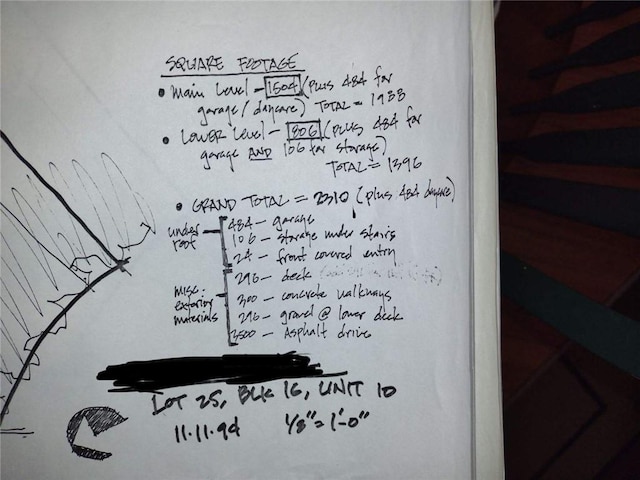 SQUARE FOOTAGE
• Main Level - 1504 (PLUS 484 for
garage/daycare) TOTAL = 1988
• LOWER Level - 806 (PLUS 484 for
garage AND 106 for storage)
TOTAL = 1396
• GRAND TOTAL = 2310 (plus 484 daycare)
under roof
484 - garage
106 - storage under stairs
24 - front covered entry
misc. exterior materials
296 - deck
300 - concrete walkways
296 - gravel @ lower deck
3500 - Asphalt drive
LOT 25, BLK 16, UNIT 10
11·11·94 1/8" = 1'-0"